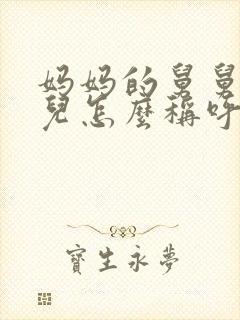 妈妈的舅舅
兒怎麼稱呼
寶生永夢